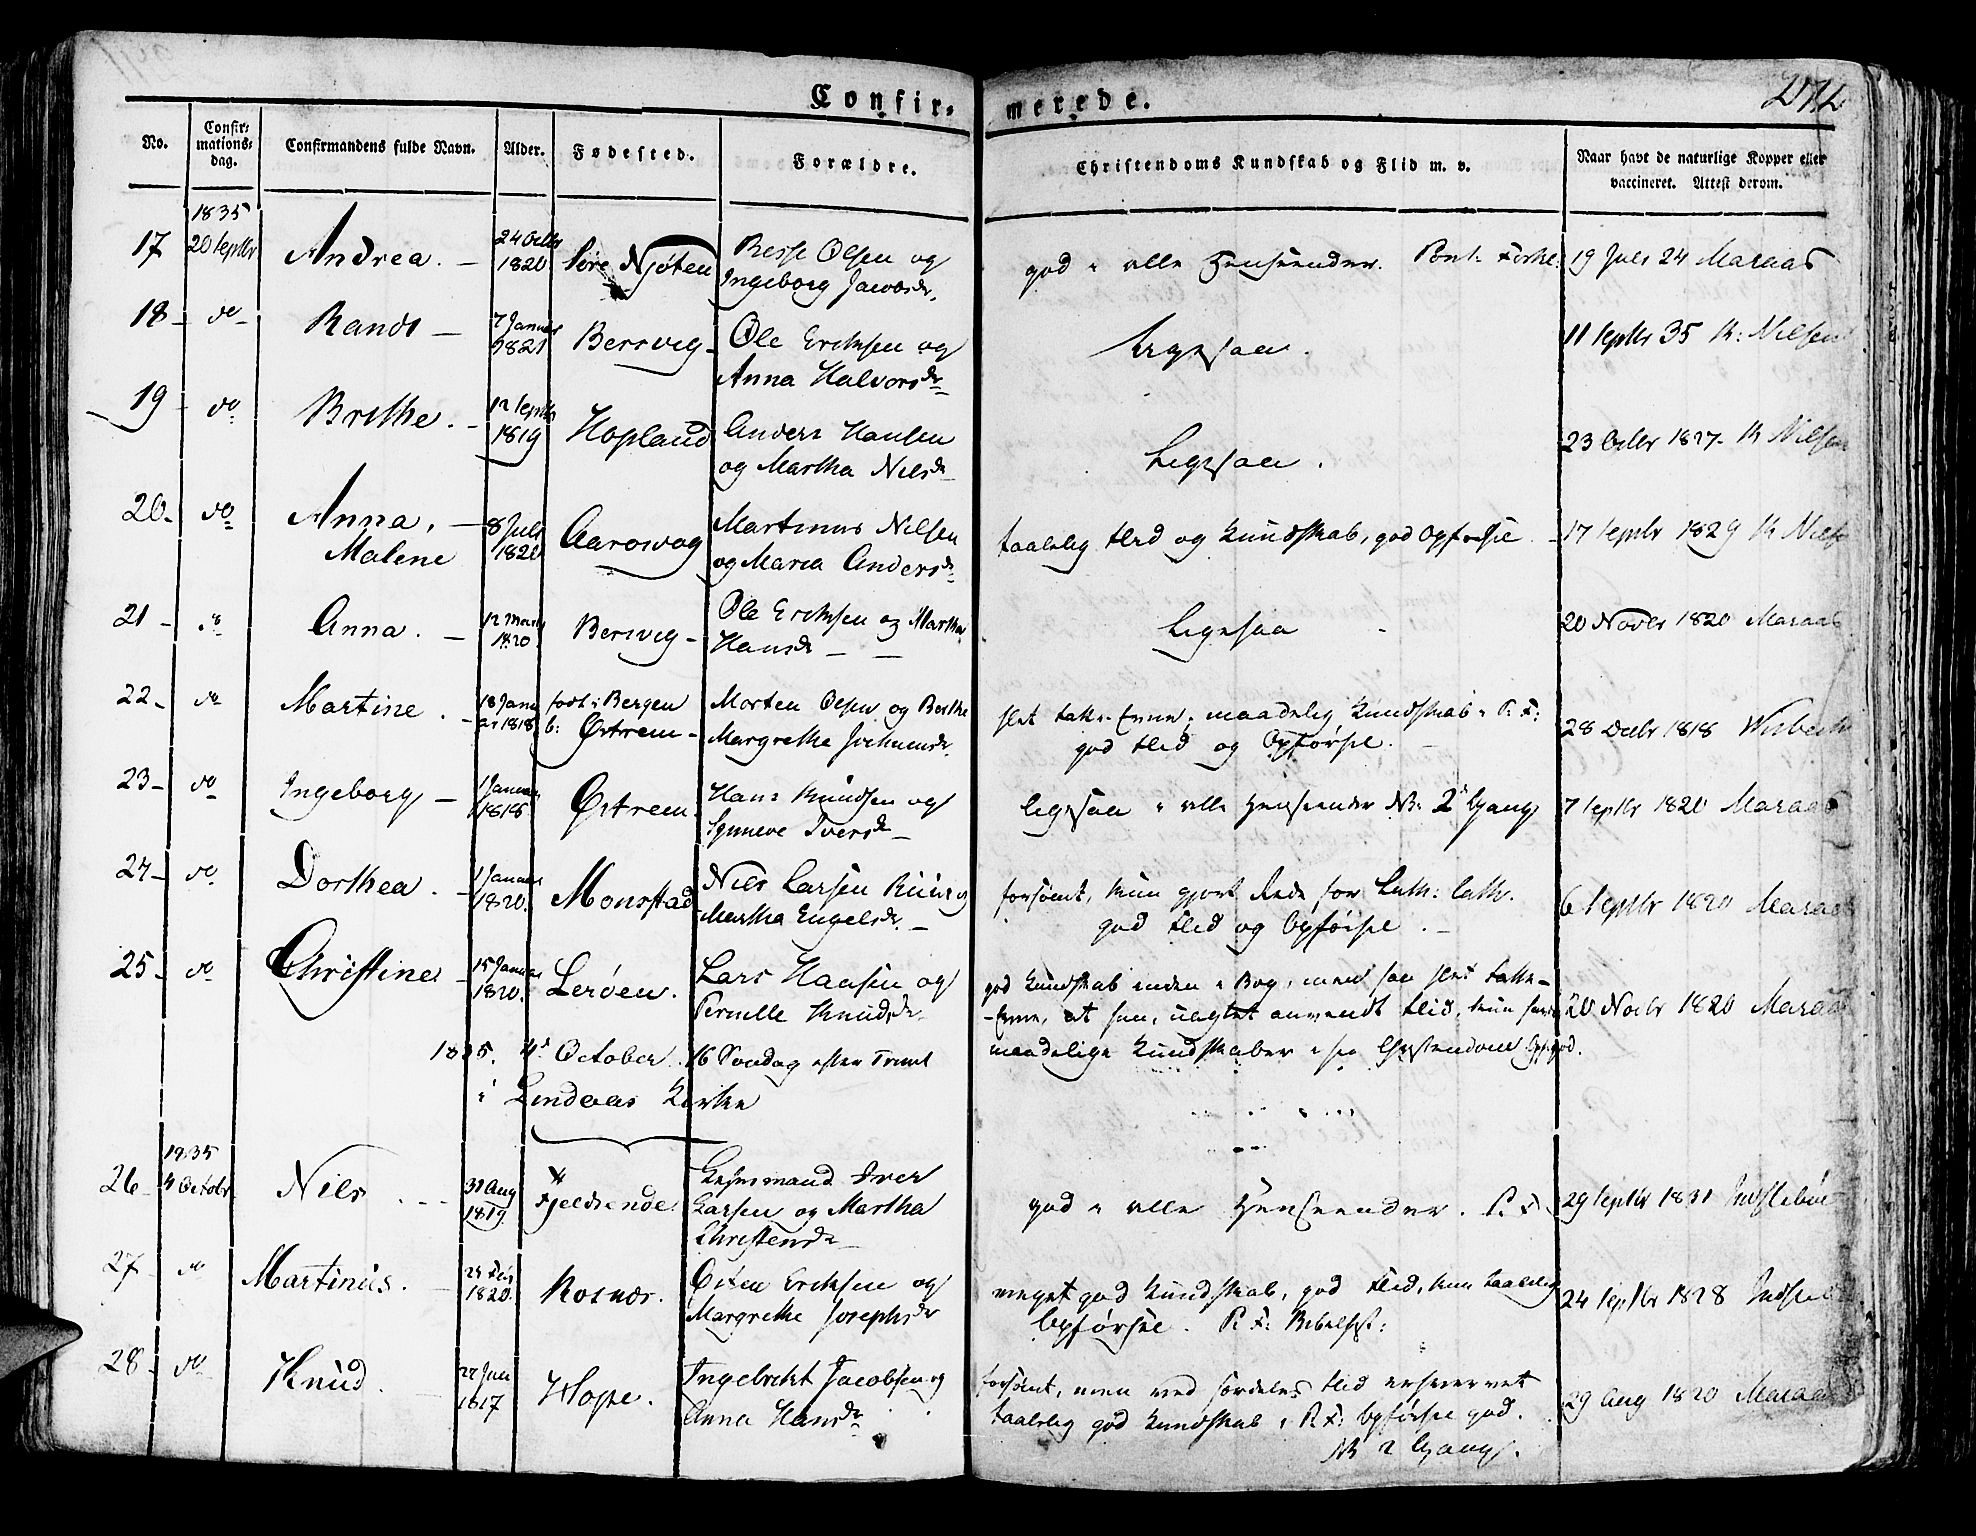 Confir- merede. 272
No. Confir-mations-dag. Confirmandens fulde Navn. Alder. Fødested. Forældre. Christendoms Kundskab og Flid m. v. Naar havt de naturlige Kopper eller vaccineret. Attest derom.
1835
17 20 Septbr Andrea. 24 Octbr 1820 Njøten Olsen og Ingeborg Jacobsdr. god i alle Henseender. 19 Juli 24 Maraas
18 do Randi 7 Januar 1821 Berrvig Ole Eriksen og Anna Halvorsdr Ligesaa. 11 Septbr 35 K: Nilsen
19 do Brithe. 12 Septbr 1819 Hopland Anders Hansen og Martha Nilsdr Ligesaa. 23 Octbr 1827 K Nilsen
20 do Anna, Malene 8 Juli 1820 Martinus Nilsen og Maria Andersdr taalelig Flid og Kundskab, god Opførsel 17 Septbr 1829 K Nilsen
21 do Anna. 12 Marts 1820 Bervig Ole Eriksen og Martha Hansdr Ligesaa 20 Novbr 1820 Maraas
22 do Martine. 18 Januar 1818 født i Bergen b: Østrem Morten Olsen og Berthe Margrethe slet Fatte-Evne, maadelig Kundskab i R. F: god Flid og Opførsel. 28 Decbr 1818 Wisbech
23 do Ingeborg 1 Januar 1818 Østrem Hans Knudsen og Synneve Iversdr ligesaa i alle Henseender NB: 2d Gang 7 Septbr 1820 Maraas
24 do Dorthea. 1 Januar 1820. Monstad Niels Larsen og Martha Engelsdr. forsømt, kun gjort Rede for Luth: Cath. god Flid og Opførsel. 6 Septbr 1820 Maraas
25 do Christine 15 Januar 1820. Lerøen. Lars Hansen og Pernille Knudsdr god Kundskab inden i Bog, men saa slet Fatte-Evne, at hun, uagtet anvendt Flid, kun har maadelige Kundskaber i sin Christendom Opf. god. 20 Novbr 1820 Maraas
1835. 4d October. 16 Søndag efter Trinit
i Lindaas Kirke
1835
26 4 Octobr Niels 31 Aug 1819 Fjeldsende Iver Larsen og Martha Christensdr god i alle Henseender. R. F. 29 Septbr 1831
27 do Martinus. 1820. Rosnæs. Østen Eriksen og Margrethe Josephsdr meget god Kundskab, god Flid, kun taalelig Opførsel. R F: 24 Septbr 1828
28 do Knud. 1817 Hope. Ingebricht Jacobsen og Anna Hansdr forsømt, men ved særdeles Flid erhvervet taalelig god Kundskab i R F: Opførsel god. NB 2 Gang. 29 Aug 1820 Maraas